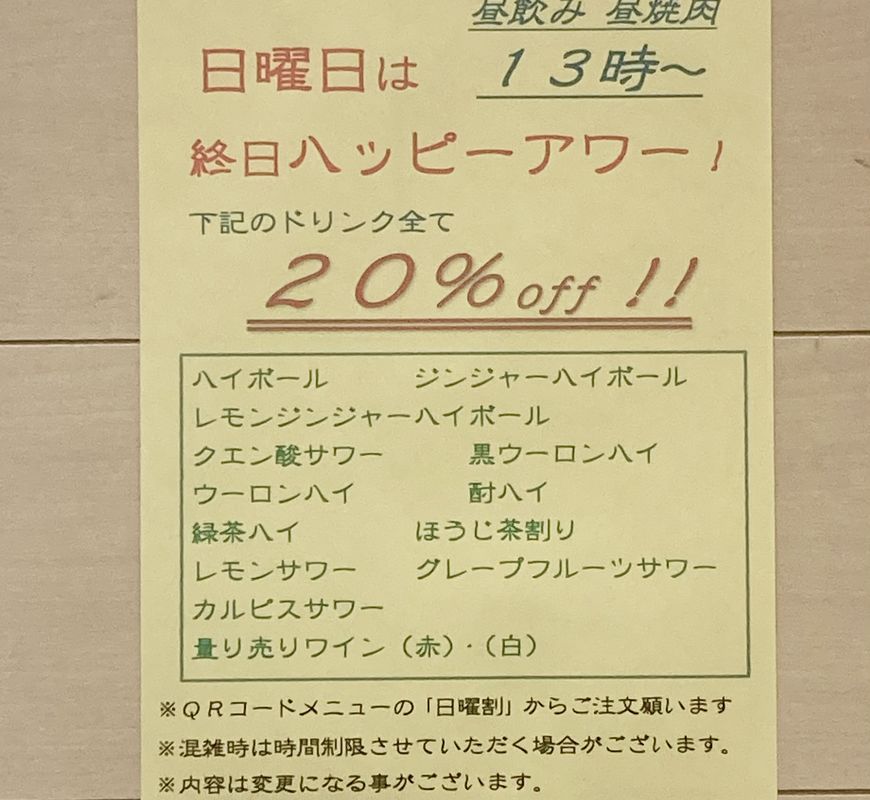 昼飲み 昼焼肉
日曜日は １３時～
終日ハッピーアワー！
下記のドリンク全て
２０％off！！
ハイボール ジンジャーハイボール
レモンジンジャーハイボール
クエン酸サワー 黒ウーロンハイ
ウーロンハイ 酎ハイ
緑茶ハイ ほうじ茶割り
レモンサワー グレープフルーツサワー
カルピスサワー
量り売りワイン（赤）・（白）
※ＱＲコードメニューの「日曜割」からご注文願います
※混雑時は時間制限させていただく場合がございます。
※内容は変更になる事がございます。